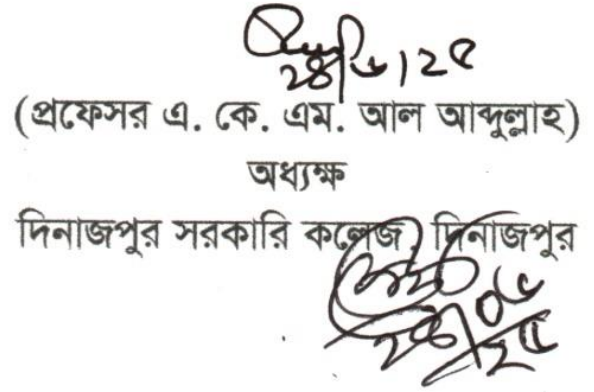 ২৪/৬/২৫
(প্রফেসর এ. কে. এম. আল আব্দুল্লাহ)
অধ্যক্ষ
দিনাজপুর সরকারি কলেজ, দিনাজপুর